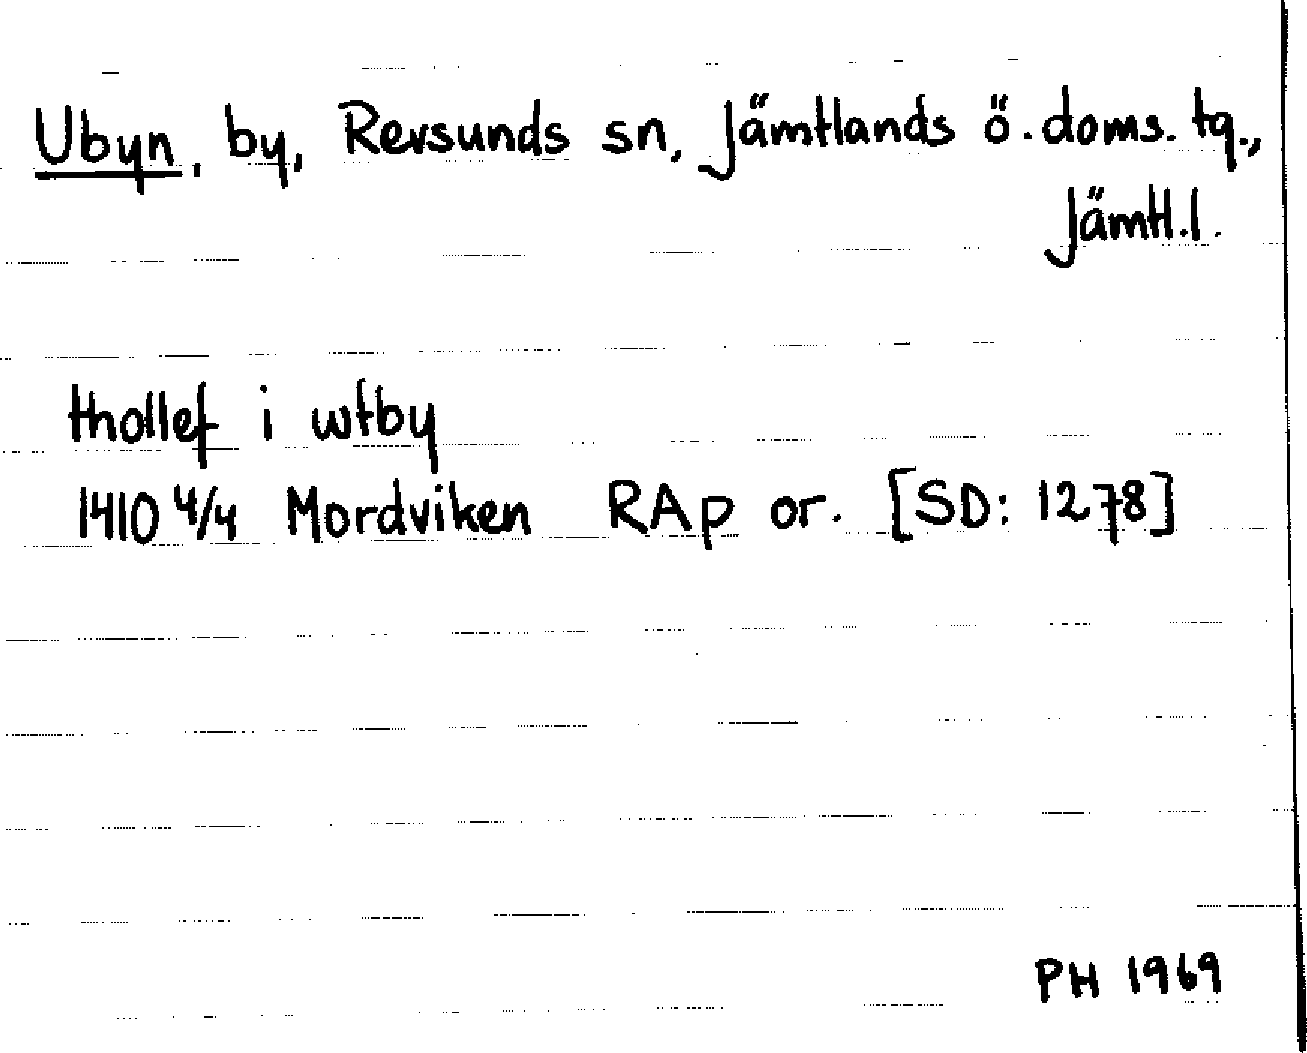 Ubyn, by, Revsunds sn, Jämtlands ö. doms. tg.,
Jämtl.l.
thollef i wtby
1410 4/4 Mordviken RAp or. [SD: 1278]
PH 1969